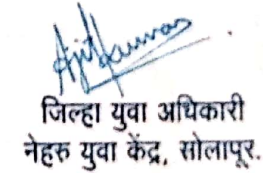 Ajit Kumar
जिल्हा युवा अधिकारी
नेहरु युवा केंद्र, सोलापूर.